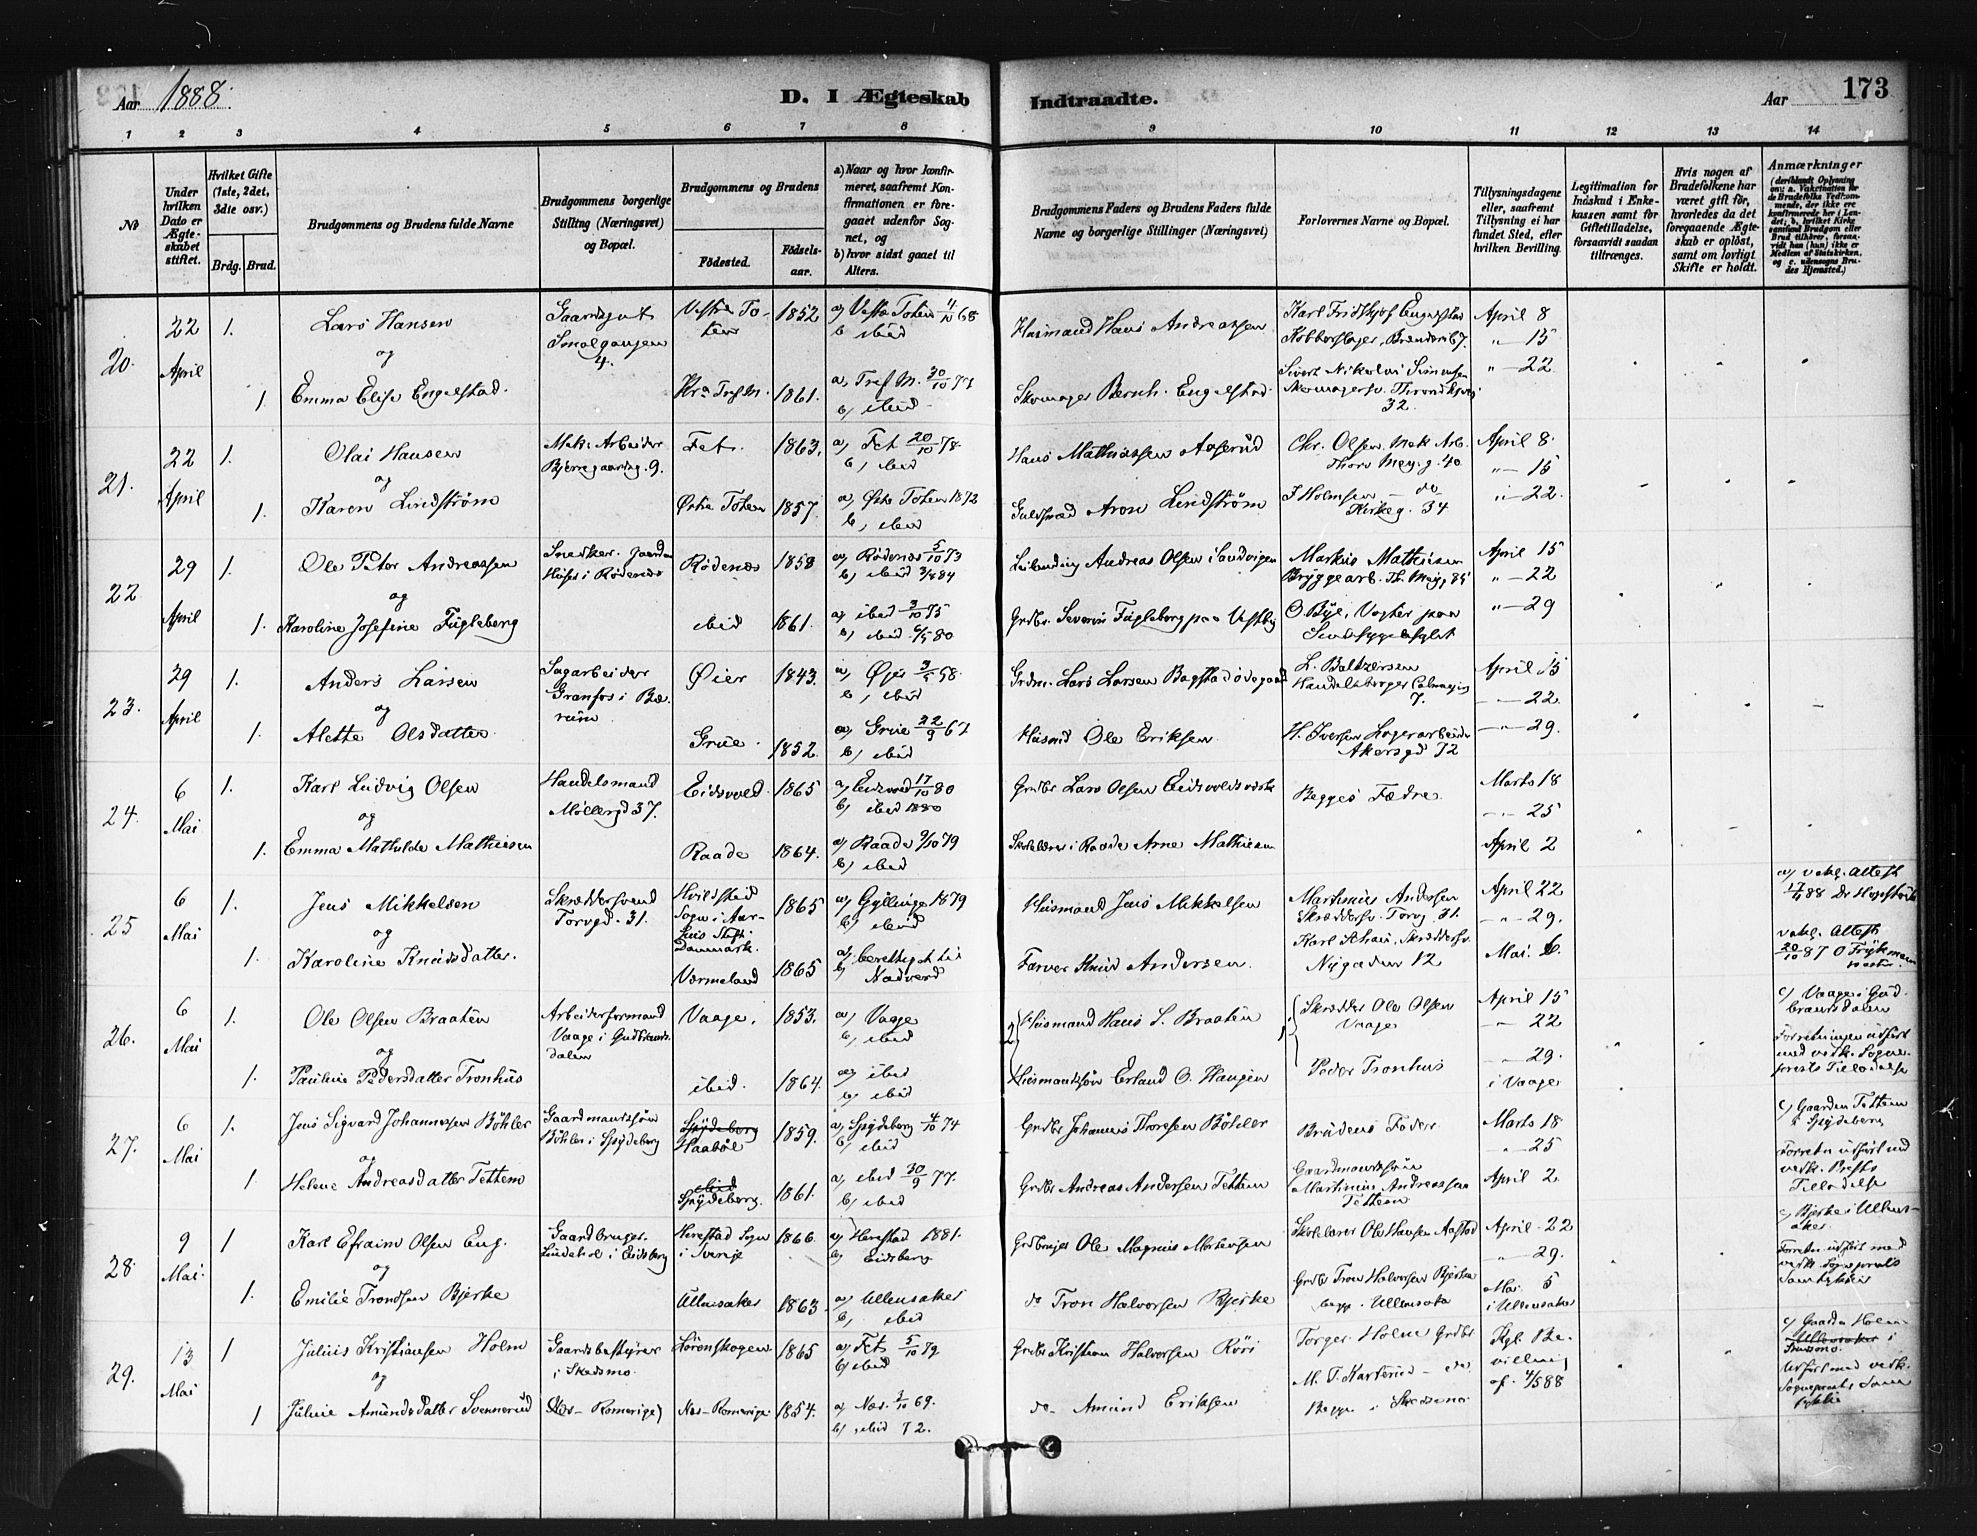 Aar 1888.
D. I Ægteskab Indtraadte.
Aar 173
1 2 3 4 5 6 7 8 9 10 11 12 13 14
No
Under hvilken Dato er Ægteskabet stiftet.
Hvilket Gifte (1ste, 2det, 3die osv.)
Brdg. Brud.
Brudgommens og Brudens fulde Navne
Brudgommens borgerlige Stilling (Næringsvei) og Bopæl.
Brudgommens og Brudens
Födested.
Födselsaar.
a) Naar og hvor konfirmeret, saafremt Konfirmationen er foregaaet udenfor Sognet, og
b) hvor sidst gaaet til Alters.
Brudgommens Faders og Brudens Faders fulde Navne og borgerlige Stillinger (Næringsvei)
Forlovernes Navne og Bopæl.
Tillysningsdagene eller, saafremt Tillysning ei har fundet Sted, efter hvilken Bevilling.
Legitimation for Indskud i Enkekassen samt for Giftetilladelse, forsaavidt saadan tiltrænges.
Hvis nogen af Brudefolkene har været gift för, hvorledes da det foregaaende Ægteskab er oplöst, samt om lovligt Skifte er holdt.
Anmærkninger (deriblandt Oplysning om: a. Vakcination for de Brudefolks Vedkommende, der ikke ere konfirmerede her i Landet; b. hvilket Kirkesamfund Brudgom eller Brud tilhörer, forsaavidt han (hun) ikke er Medlem af Statskirken, og c. udensogns Brudes Hjemsted.)
20. 22 April 1. Lars Hansen Gaardsgut Smalgangen 4. Vestre Toten 1852 a) Vestre Toten 4/10 68 b) ibid Husmand Hans Andreassen Karl Fridthjof Engelstad Kobberslager, Brenneri 67. April 8 " 15 " 22
og
1. Emma Elise Engelstad. Kra Tref. M. 1861. a) Tref. M. 30/10 77 b) ibid Skomager Bernh. Engelstad Sivert Nikolai Simensen Skomagersv. Throndhjemsv. 32.
21. 22 April 1. Olai Hansen Mek. Arbeider Bjerregaardsg. 9. Fet. 1863. a) Fet 20/10 78 b) ibid Hans Mathiassen Aaserud Chr. Olsen Mek. Arb. Thorv. Meyg. 40 April 8. " 15 " 22.
og
1. Karen Lindström Østre Toten 1857. a) Østre Toten 1872 b) ibid Guldsmed Aron Lindström J Holmsen — do Kirkeg. 34
22 29 April 1. Ole Peter Andreassen Snedker. Gaarden i Rödenes Rödenes 1858 a) Rödenes 5/10 73 b) ibid 3/8 84 Leilending Andreas Olsen i Sandvigen Markus Mathisen Bryggearb. Th. Meyg. 85 April 15 " 22 " 29
og
1. Karoline Josefine Fugleberg ibid 1861. a) ibid 3/10 75 b) ibid 6/5 80 Grdbr. Severin Fugleberg paa Vestby O. Bye, Vogter paa Sindssygeasylet
23. 29 April 1. Anders Larsen Sagarbeider Granfos i Bærum Øier 1843. a) Øjer 58. b) ibid Grdm. Lars Larsen Bagstadödegaard L. Baltzersen Handelsborger 7. April 15 " 22. " 29.
og
1. Alette Olsdatter Grue. 1852. a) Grue 22/9 67 b) ibid Husmd Ole Eriksen H. Iversen Lagerarbeider Akersgd 72
24. 6 Mai 1. Karl Ludvig Olsen Handelsmand Möllergd 37. Eidsvold 1865 a) Eidsvold 17/10 80 b) ibid 1880 Grdbr Lars Olsen Eidsvoldsværk Begges Fædre. Marts 18 " 25 April 2
og
1. Emma Mathilde Mathiesen Raade 1864. a) Raade 9/10 79 b) ibid Skolelærer i Raade Arne Mathiesen
25 6 Mai 1. Jens Mikkelsen Skræddersvend Torvgd. 31. Hvilsted Sogn i Aarhus Stift Danmark. 1865 a) Gyllinge 1879 b) ibid Husmand Jens Mikkelsen Martinius Andersen Skræddersv. Torvg. 31. April 22 " 29. Mai 6. a) vakc. Attest 17/4 88 Dr
og
1. Karoline Knudsdatter. Vermeland 1865 a) berettiget til b) Nadverd Farver Knud Andersen. Karl Schau, Skræddersv. Nygaden 12 vakc. Attest 20/10 87 O Frykman pastor.
26. 6 Mai 1. Ole Olsen Braaten Arbeidsformand Vaage i Gudbrandsdalen Vaage. 1853. a) Vaage b) ibid Husmand Hans S. Braaten Skrædder Ole Olsen Vaage April 15 " 22 " 29. i Vaage c) Vaage i Gudbrandsdalen
og
1. Pauline Pedersdatter Tronhus ibid. 1864. a) ibid b) ibid Husmandssön Erland O. Haugen Peder Tronhus Forretningen udfört med vedk. Sogneprests Tilladelse
27. 6 Mai 1. Jens Sigvard Johannessen Böhler Gaardmandssön Böhler i Spydeberg Spydeberg Haaböl 1859. a) Spydeberg 4/10 74 b) ibid Grdbr Johannes Thoresen Böhler Brudens Fader Marts 18 " 25 April 2 c) Gaarden Tettem i Spydeberg
og
1. Helene Andreasdatter Tettem ibid Spydeberg. 1861. a) ibid 30/9 77. b) ibid Grdbr Andreas Andersen Tettem Gaardmandssön Martinius Andreassen Tettem Forretn udfört med vedk. Prests Tilladelse
28. 9 Mai. 1 Karl Efraim Olsen Eng. Gaardbruger Lindehol i Eidsberg Herestad Sogn i Sverje 1866. a) Herestad 1881. b) Eidsberg Grdbruger Ole Magnus Mortensen Skolelærer Ole Hansen Aastad April 22 " 29. Mai 5 i Ullensaker c) Bjerke i Ullensaker.
og
1. Emilie Trondsen Bjerke Ullensaker 1863 a) Ullensaker b) ibid do Tron Halvorsen Bjerke Grdbr Tron Halvorsen Bjerke begge Ullensaker Forretn udfört med vedk. Sogneprests Samtykke
29. 13 Mai 1 Julius Kristiansen Holm Gaardsbestyrer i Skedsmo Lörenskogen 1865 a) Fet 5/10 79 b) ibid Grdbr Kristian Halvorsen Röri Torger Holm Grdbr Kgl. Bevilling af 4/5 88 c) Gaarden Holm Ullensaker i Skedsmo.
og
1 Julie Amundsdatter Svennerud (Næs - Romerige) Næs - Romerige 1854. a) Næs. 3/10 69. b) ibid 72. do Amund Eriksen M. T. Karterud — do Begge i Skedsmo Udfört med vedk. Sogneprests Samtykke